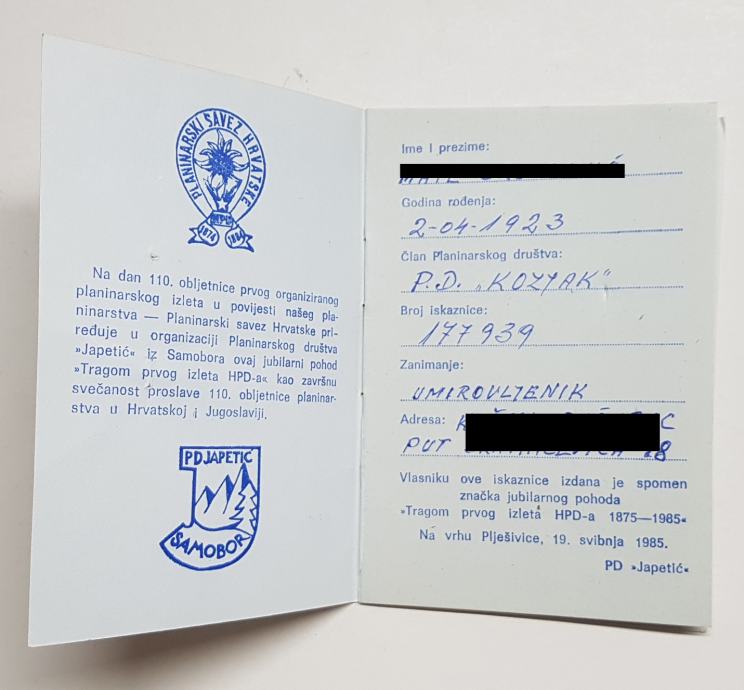 PLANINARSKI SAVEZ HRVATSKE
1874
Na dan 110. obljetnice prvog organiziranog
planinarskog izleta u povijesti našeg pla-
ninarstva — Planinarski savez Hrvatske pri-
ređuje u organizaciji Planinarskog društva
»Japetić« iz Samobora ovaj jubilarni pohod
»Tragom prvog izleta HPD-a« kao završnu
svečanost proslave 110. obljetnice planinar-
stva u Hrvatskoj i Jugoslaviji.
PD JAPETIĆ
SAMOBOR
Ime i prezime:
Godina rođenja:
2-04-1923
Član Planinarskog društva:
P.D. „KOZJAK"
Broj iskaznice:
177939
Zanimanje:
UMIROVLJENIK
Adresa:
PUT 18
Vlasniku ove iskaznice izdana je spomen
značka jubilarnog pohoda
»Tragom prvog izleta HPD-a 1875—1985«
Na vrhu Plješivice, 19. svibnja 1985.
PD »Japetić«